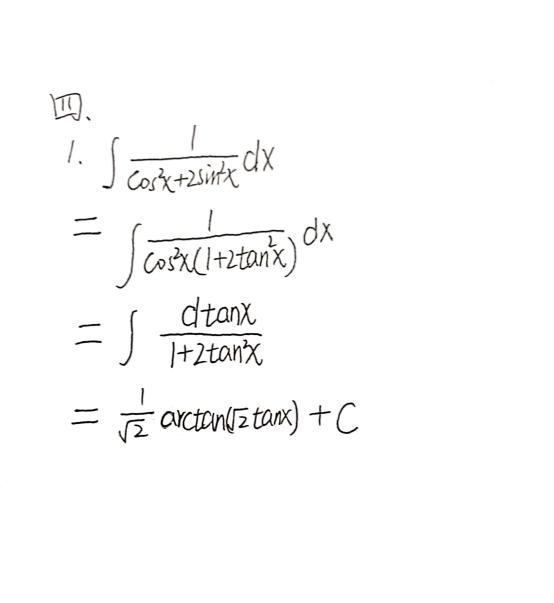 四、
1. ∫ 1/(cos²x+2sin²x) dx
= ∫ 1/(cos²x(1+2tan²x)) dx
= ∫ dtanx/(1+2tan²x)
= 1/√2 arctan(√2 tanx) + C